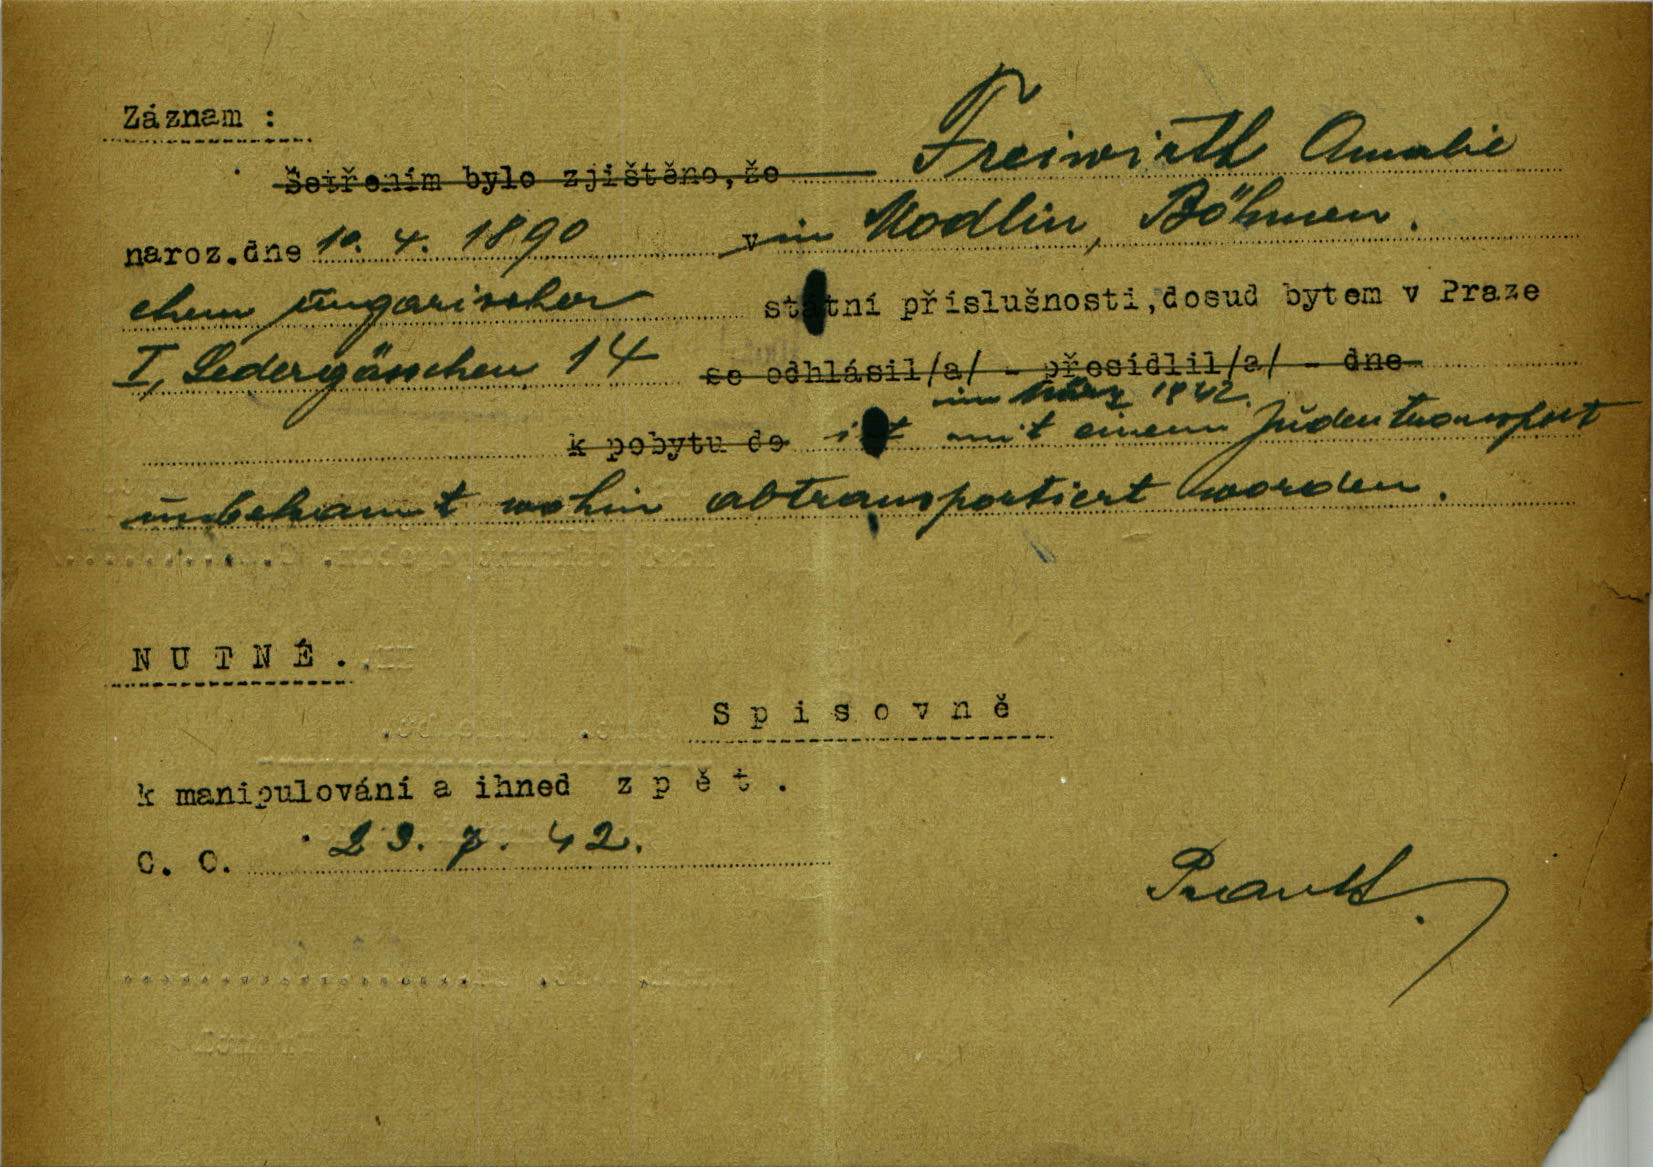 Záznam :
Šetřením bylo zjištěno, že Freiwirth Amalie
naroz.dne 10. 4. 1890 v in Modlin, Böhmen.
ehem ungarischer státní příslušnosti, dosud bytem v Praze
I, Ledergässchen 14 se odhlásil/a/ - přesídlil/a/ - dne
im März 1942.
k pobytu do ist mit einem Judentransport
unbekannt wohin abtransportiert worden.
N U T N É .
S p i s o v n ě
k manipulování a ihned z p ě t .
C. O. 23. 7. 42.